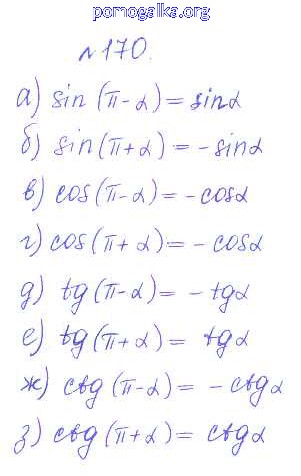 pomogalka.org
№170.
а) sin (π-α) = sinα
б) sin(π+α) = -sinα
в) cos(π-α) = -cosα
г) cos(π+α) = -cosα
д) tg(π-α) = -tgα
е) tg(π+α) = tgα
ж) ctg(π-α) = -ctgα
з) ctg(π+α) = ctgα